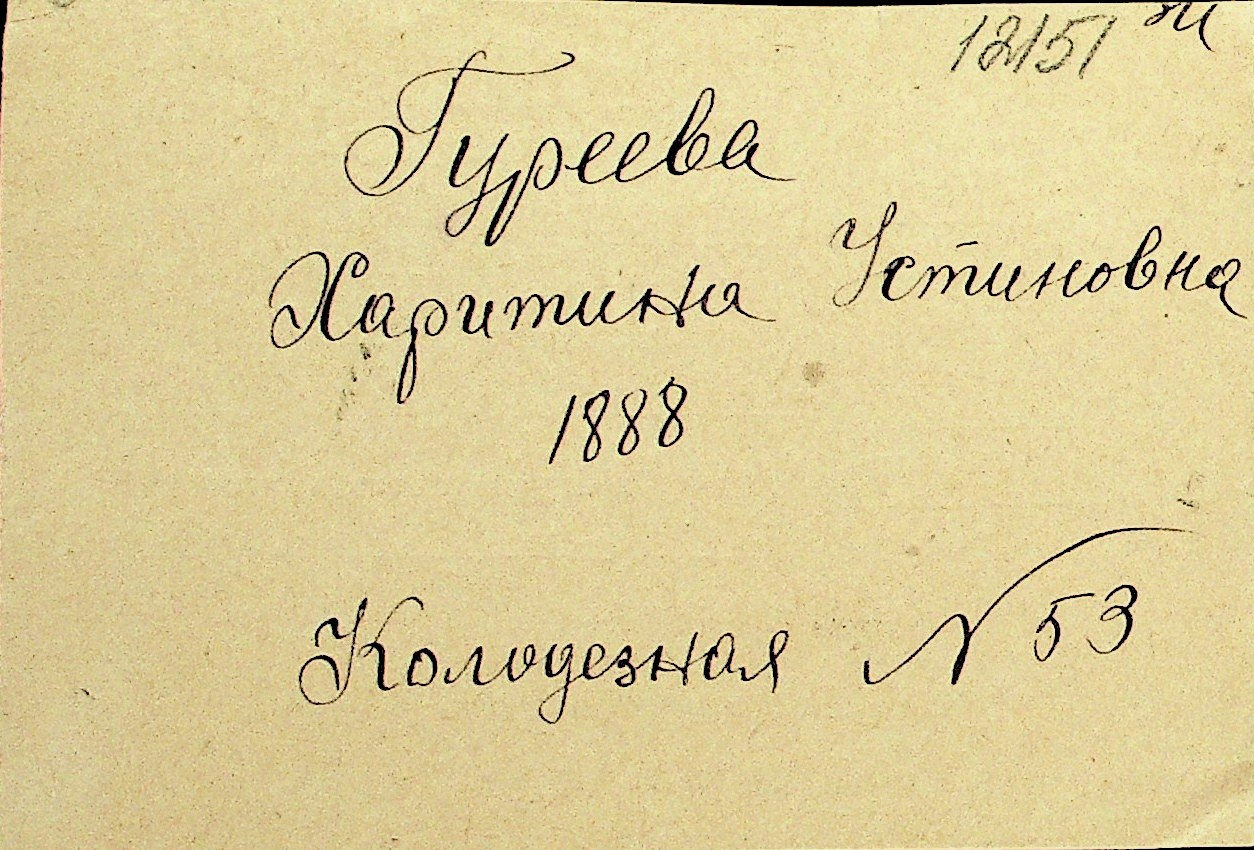 12151
Гуреева
Харитина Устиновна
1888
Колодезная N 53